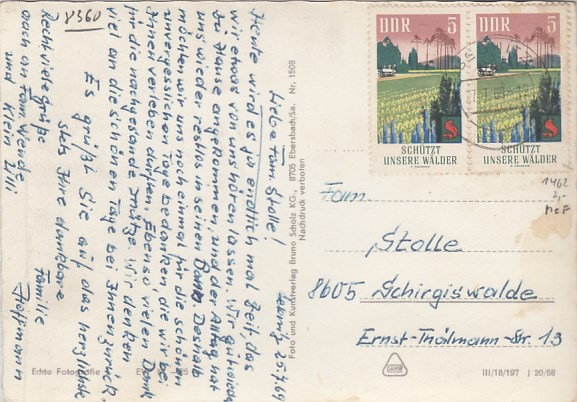 8360
Liebe Fam. Stolle!
Heute wird es ja endlich mal Zeit, das
wir etwas von uns hören lassen. Wir
zu Hause angekommen, und der Alltag hat
uns wieder restlos in seinen Bann. Deshalb
möchten wir uns noch einmal für die schönen
unvergesslichen Tage bedanken die wir bei
Ihnen verleben durften. Ebenso vielen Dank
für die nachgesandte Mütze. Wir denken
viel an die schönen Tage bei Ihnen zurück.
Es grüßt Sie auf das herzlichste
stets Ihre dankbare
Familie
Hoffmann
Recht viele Grüße
auch an Fam.
und Klein Uli.
25.7.69
Foto und Kunstverlag Bruno Scholz KG., 8705 Ebersbach/Sa. Nr. 1508
Nachdruck verboten
DDR 5
SCHÜTZT
UNSERE WÄLDER
DDR 5
SCHÜTZT
UNSERE WÄLDER
1462
2,-
Fam.
Stolle
8605 Schirgiswalde
Ernst-Thälmann-Str. 13
Echte Fotografie
III/18/197 J 20/68